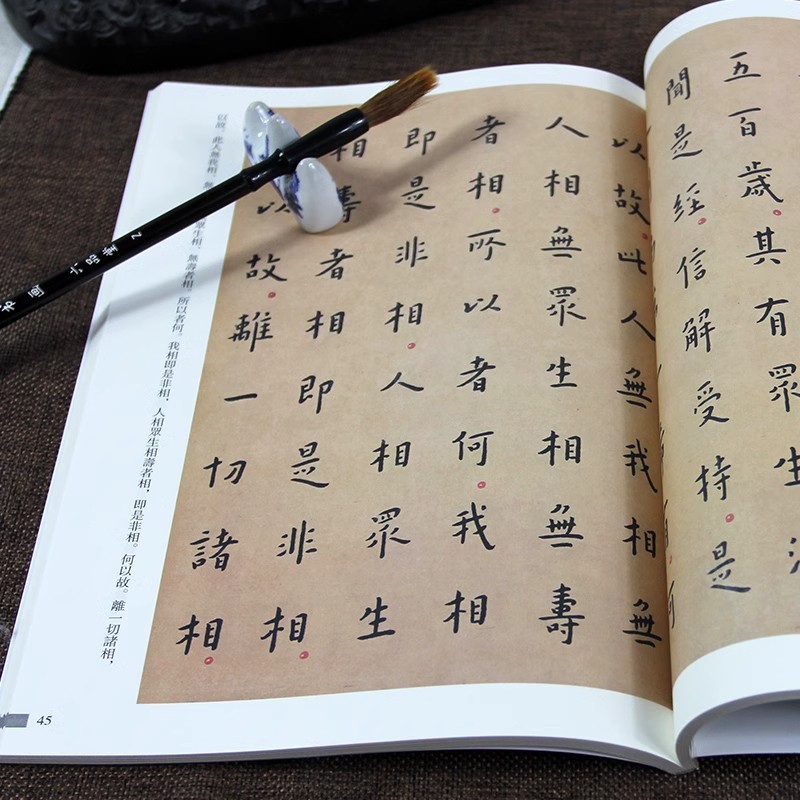 五百歲其有眾生
聞是經信解受持是
以故此人無我相無
人相無眾生相無壽
者相所以者何我相
即是非相人相眾生
相壽者相即是非相
以故離一切諸相
以故。此人無我相、無眾生相、無壽者相。所以者何。我相即是非相、人相眾生相壽者相、即是非相。何以故。離一切諸相、
45
画 六品堂